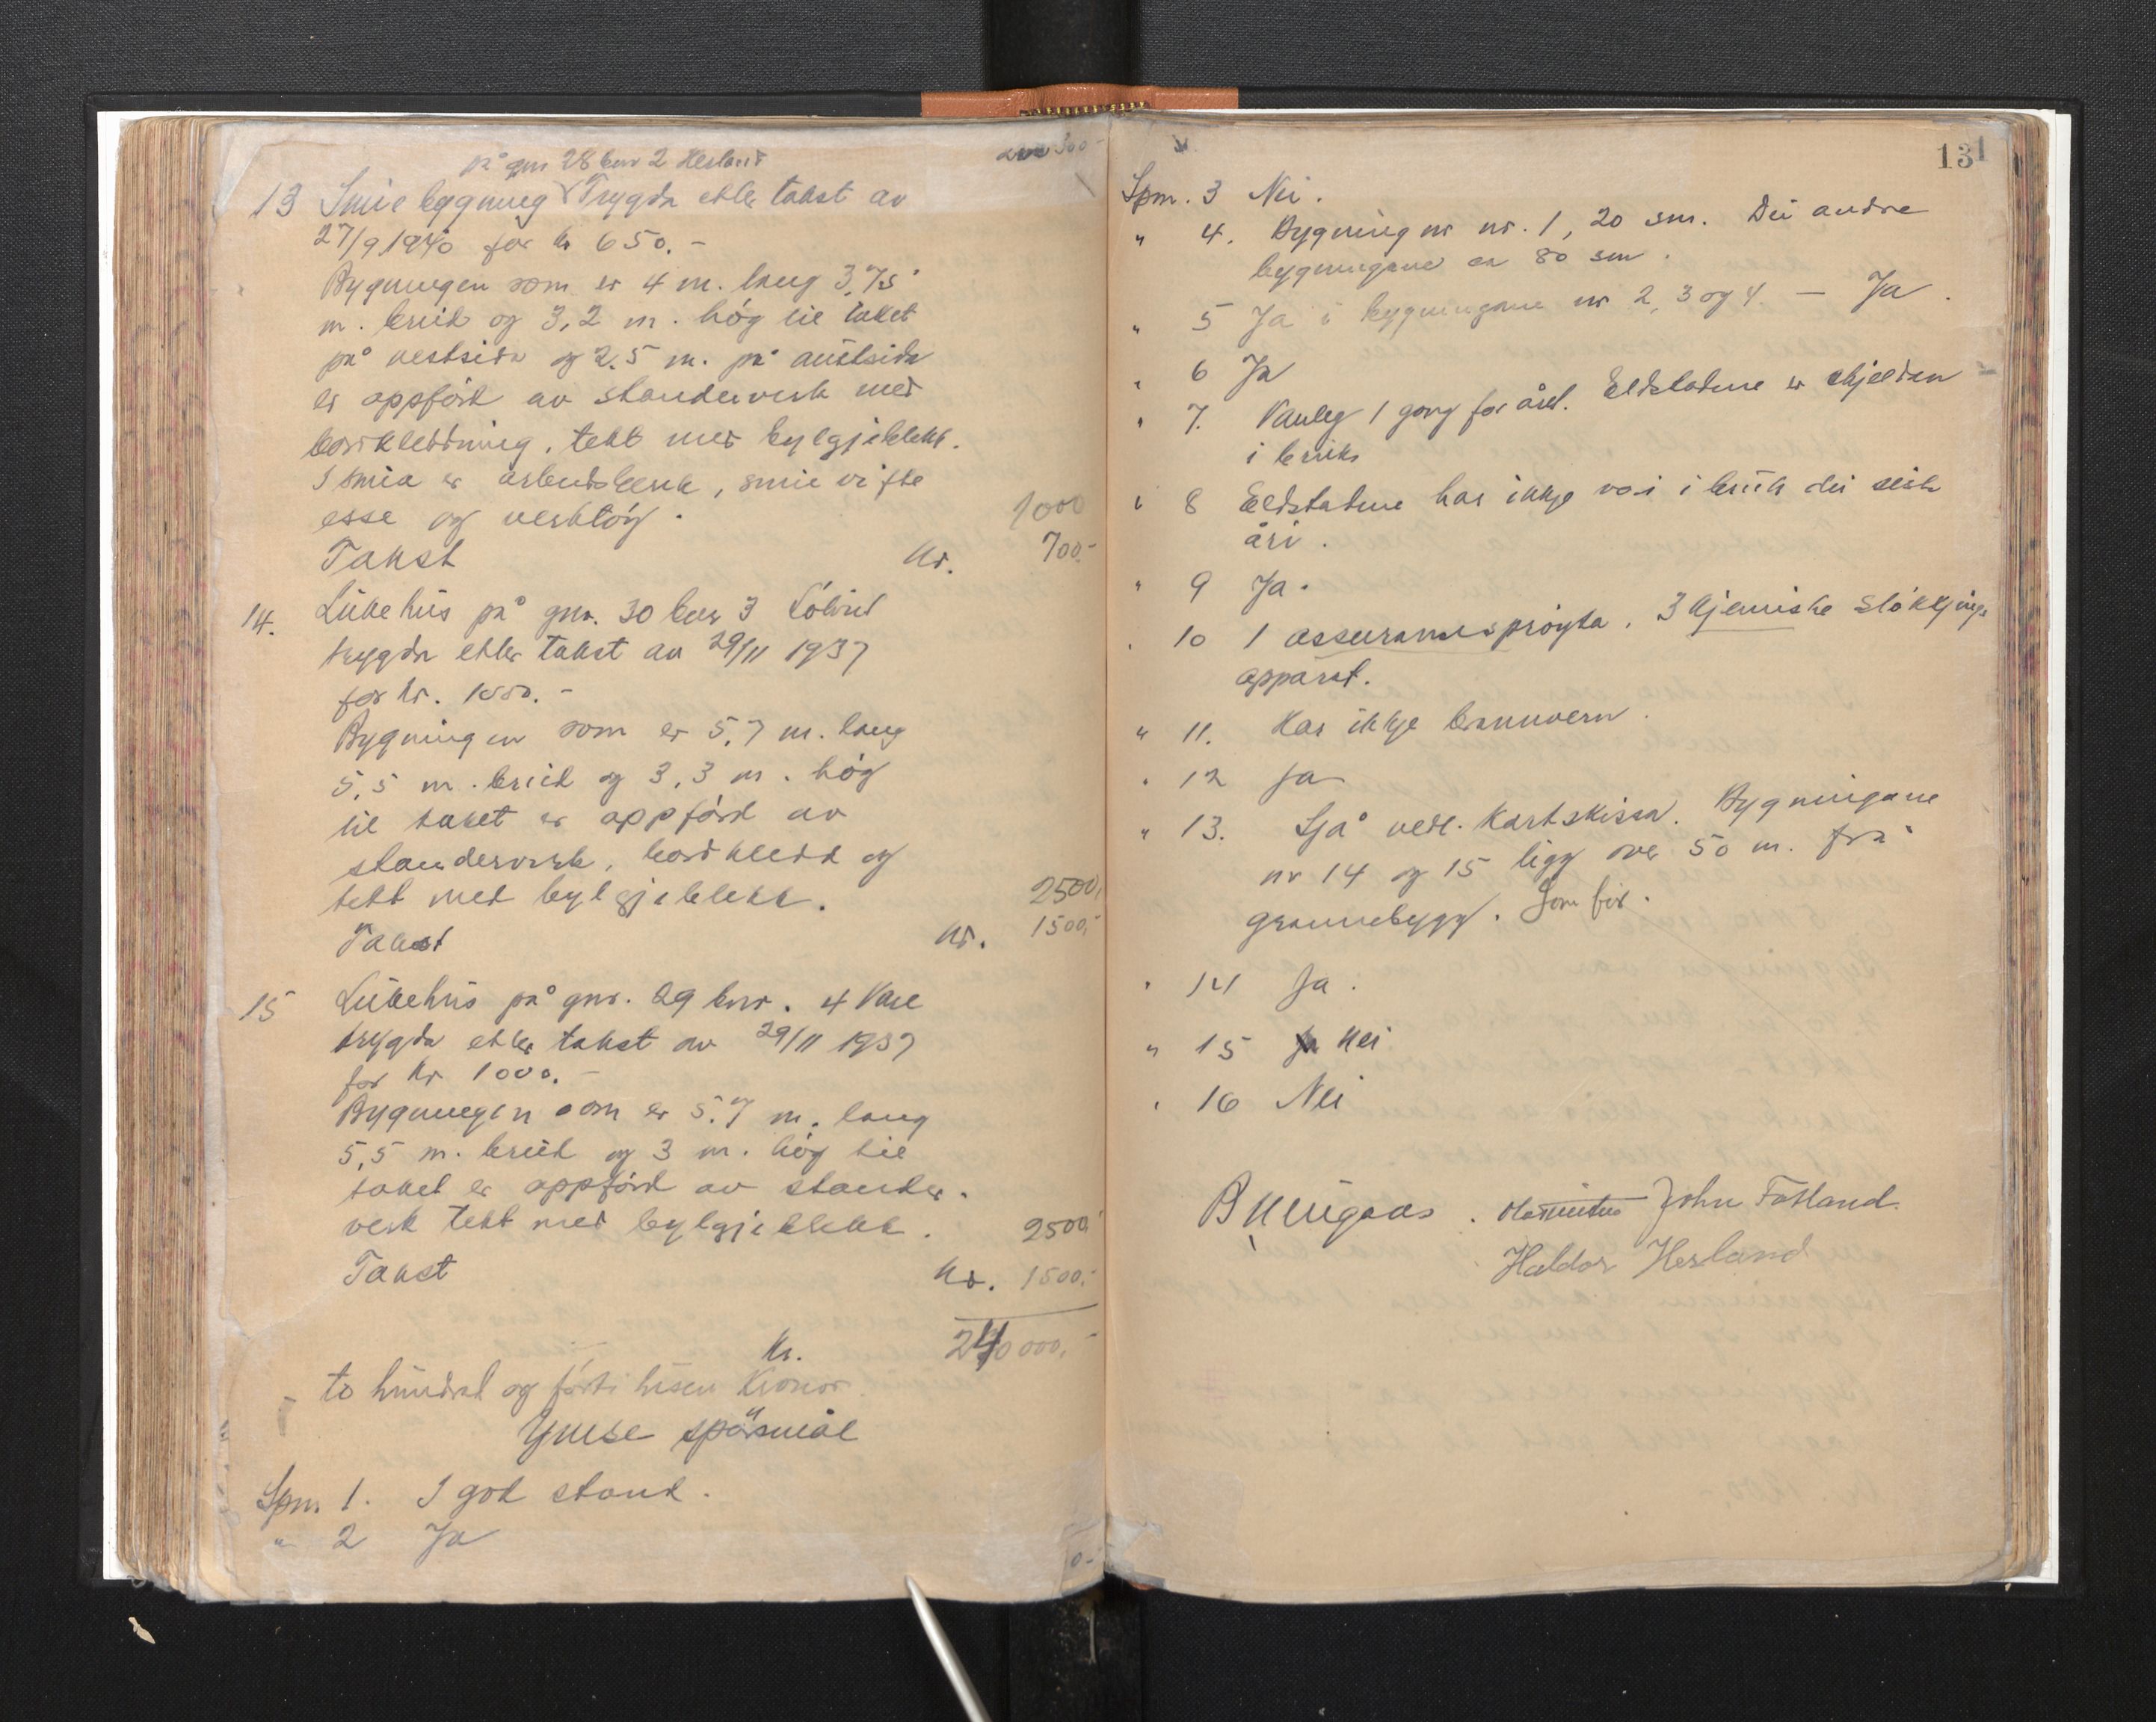 på gnr 28 bnr 2 Hesland
300-
13 Smie bygning Trygda etter takst av
27/9 1940 for kr 650.-
Bygningen som er 4 m. lang 3,75
m. breid og 3,2 m. høg til taket
på vestsida og 2,5 m. på austsida
er oppført av standerverk med
bordkledning, tekt med bylgjeblekk.
I smia er arbeidsbenk, smievifte
esse og verktøy.
1000
Takst kr. 700.-
14. Lükehüs på gnr. 30 bnr 3
trygda etter takst av 29/11 1937
for kr.
Bygningen som er 5,7 m. lang
5,5 m. breid og 3,3 m. høg
til taket er oppførd av
standerverk, bordkledd og
tekt med bylgjeblekk.
2500,
Takst kr. 1500,-
15 Lükehüs på gnr. 29 bnr. 4 Våle
trygda etter takst av 29/11 1937
for kr 1000.-
Bygningen som er 5,7 m. lang
5,5 m. breid og 3 m. høg til
taket er oppførd av stander-
verk tekt med bylgjeblekk.
2500
Takst kr. 1500,-
kr. 240 000,-
- to hundrad og førti tusen Kronor.
Ymse spørsmål
Spm. 1. I god stand.
" 2 Ja
131
Spm. 3 Nei.
" 4. Bygning nr nr. 1, 20 sm. Dei andre
bygningane ca 80 sm.
" 5 Ja i bygningane nr 2, 3 og 4. — Ja.
" 6 Ja
" 7. Vanleg 1 gong for året. Eldstadene er skjeldan
i bruk
" 8 Eldstadene har ikkje vori i brük dei siste
åri.
" 9 Ja.
" 10 1 assuransesprøyta. 3 kjemiske sløkkjings
apparat.
" 11. Har ikkje brannvern.
" 12 Ja
" 13. Sjå vedl. kartskissa. Bygningane
nr 14 og 15 ligg over 50 m. frå
grannebygg. Som før.
" 14 Ja.
" 15 Nei
" 16 Nei
John Fatland.
Haldor Hesland